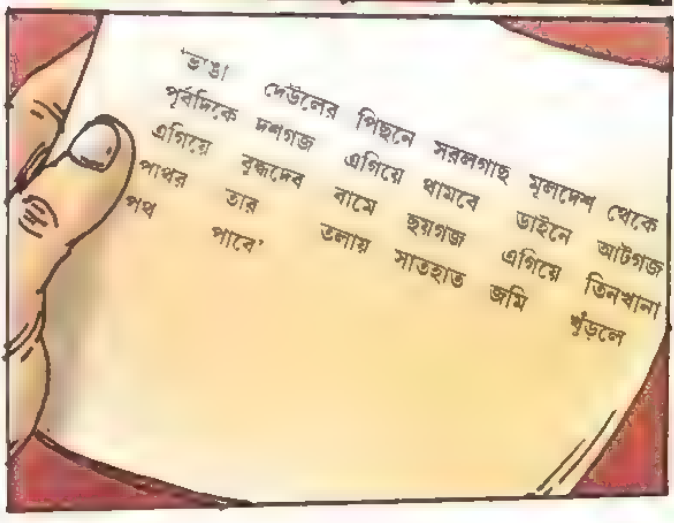 'ভাঙা দেউলের পিছনে সরলগাছ মূলদেশ থেকে
পূর্বদিকে দশগজ এগিয়ে থামবে ডাইনে আটগজ
এগিয়ে বুদ্ধদেব বামে ছয়গজ এগিয়ে তিনখানা
পাথর তার তলায় সাতহাত জমি খুঁড়লে
পথ পাবে'